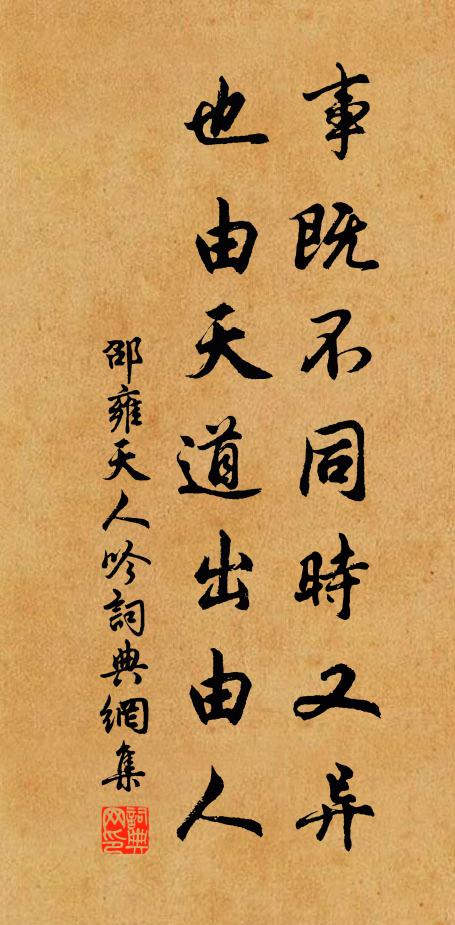 事既不同時又异
也由天道出由人
邵雍天人吟詞典網集
詞典網印